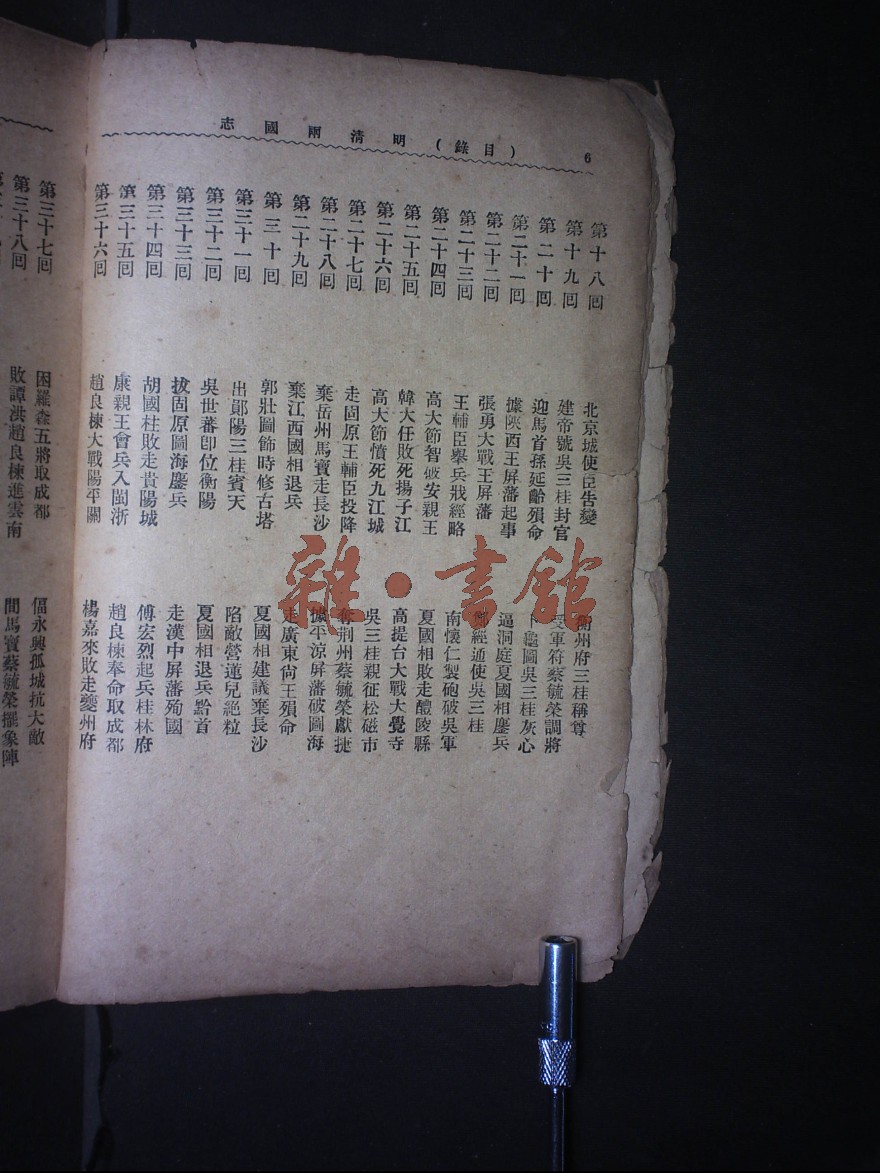 明清兩國志(目錄) 6
第十八回 北京城使臣告變 州府三桂稱尊
第十九回 建帝號吳三桂封官 受軍符蔡毓榮調將
第二十回 迎馬首孫延齡殞命 卜龜圖吳三桂灰心
第二十一回 據陝西王屏藩起事 逼洞庭夏國相鏖兵
第二十二回 張勇大戰王屏藩 鄭經通使吳三桂
第二十三回 王輔臣舉兵戕經略 南懷仁製砲破吳軍
第二十四回 高大節智破安親王 夏國相敗走醴陵縣
第二十五回 韓大任敗死揚子江 高提台大戰大覺寺
第二十六回 高大節憤死九江城 吳三桂親征松磁市
第二十七回 走固原王輔臣投降 奪荆州蔡毓榮獻捷
第二十八回 棄岳州馬寶走長沙 據平涼屏藩破圖海
第二十九回 棄江西國相退兵 走廣東尙王殞命
第三十回 郭壯圖飾時修古塔 夏國相建議棄長沙
第三十一回 出鄖陽三桂賓天 陷敵營蓮兒絕粒
第三十二回 吳世蕃卽位衡陽 夏國相退兵黔首
第三十三回 拔固原圖海鏖兵 走漢中屏藩殉國
第三十四回 胡國柱敗走貴陽城 傅宏烈起兵桂林府
第三十五回 康親王會兵入閩浙 趙良棟奉命取成都
第三十六回 趙良棟大戰陽平關 楊嘉來敗走夔州府
第三十七回 困羅森五將取成都 偪永興孤城抗大敵
第三十八回 敗譚洪趙良棟進雲南 間馬寶蔡毓榮擺象陣
雜·書館